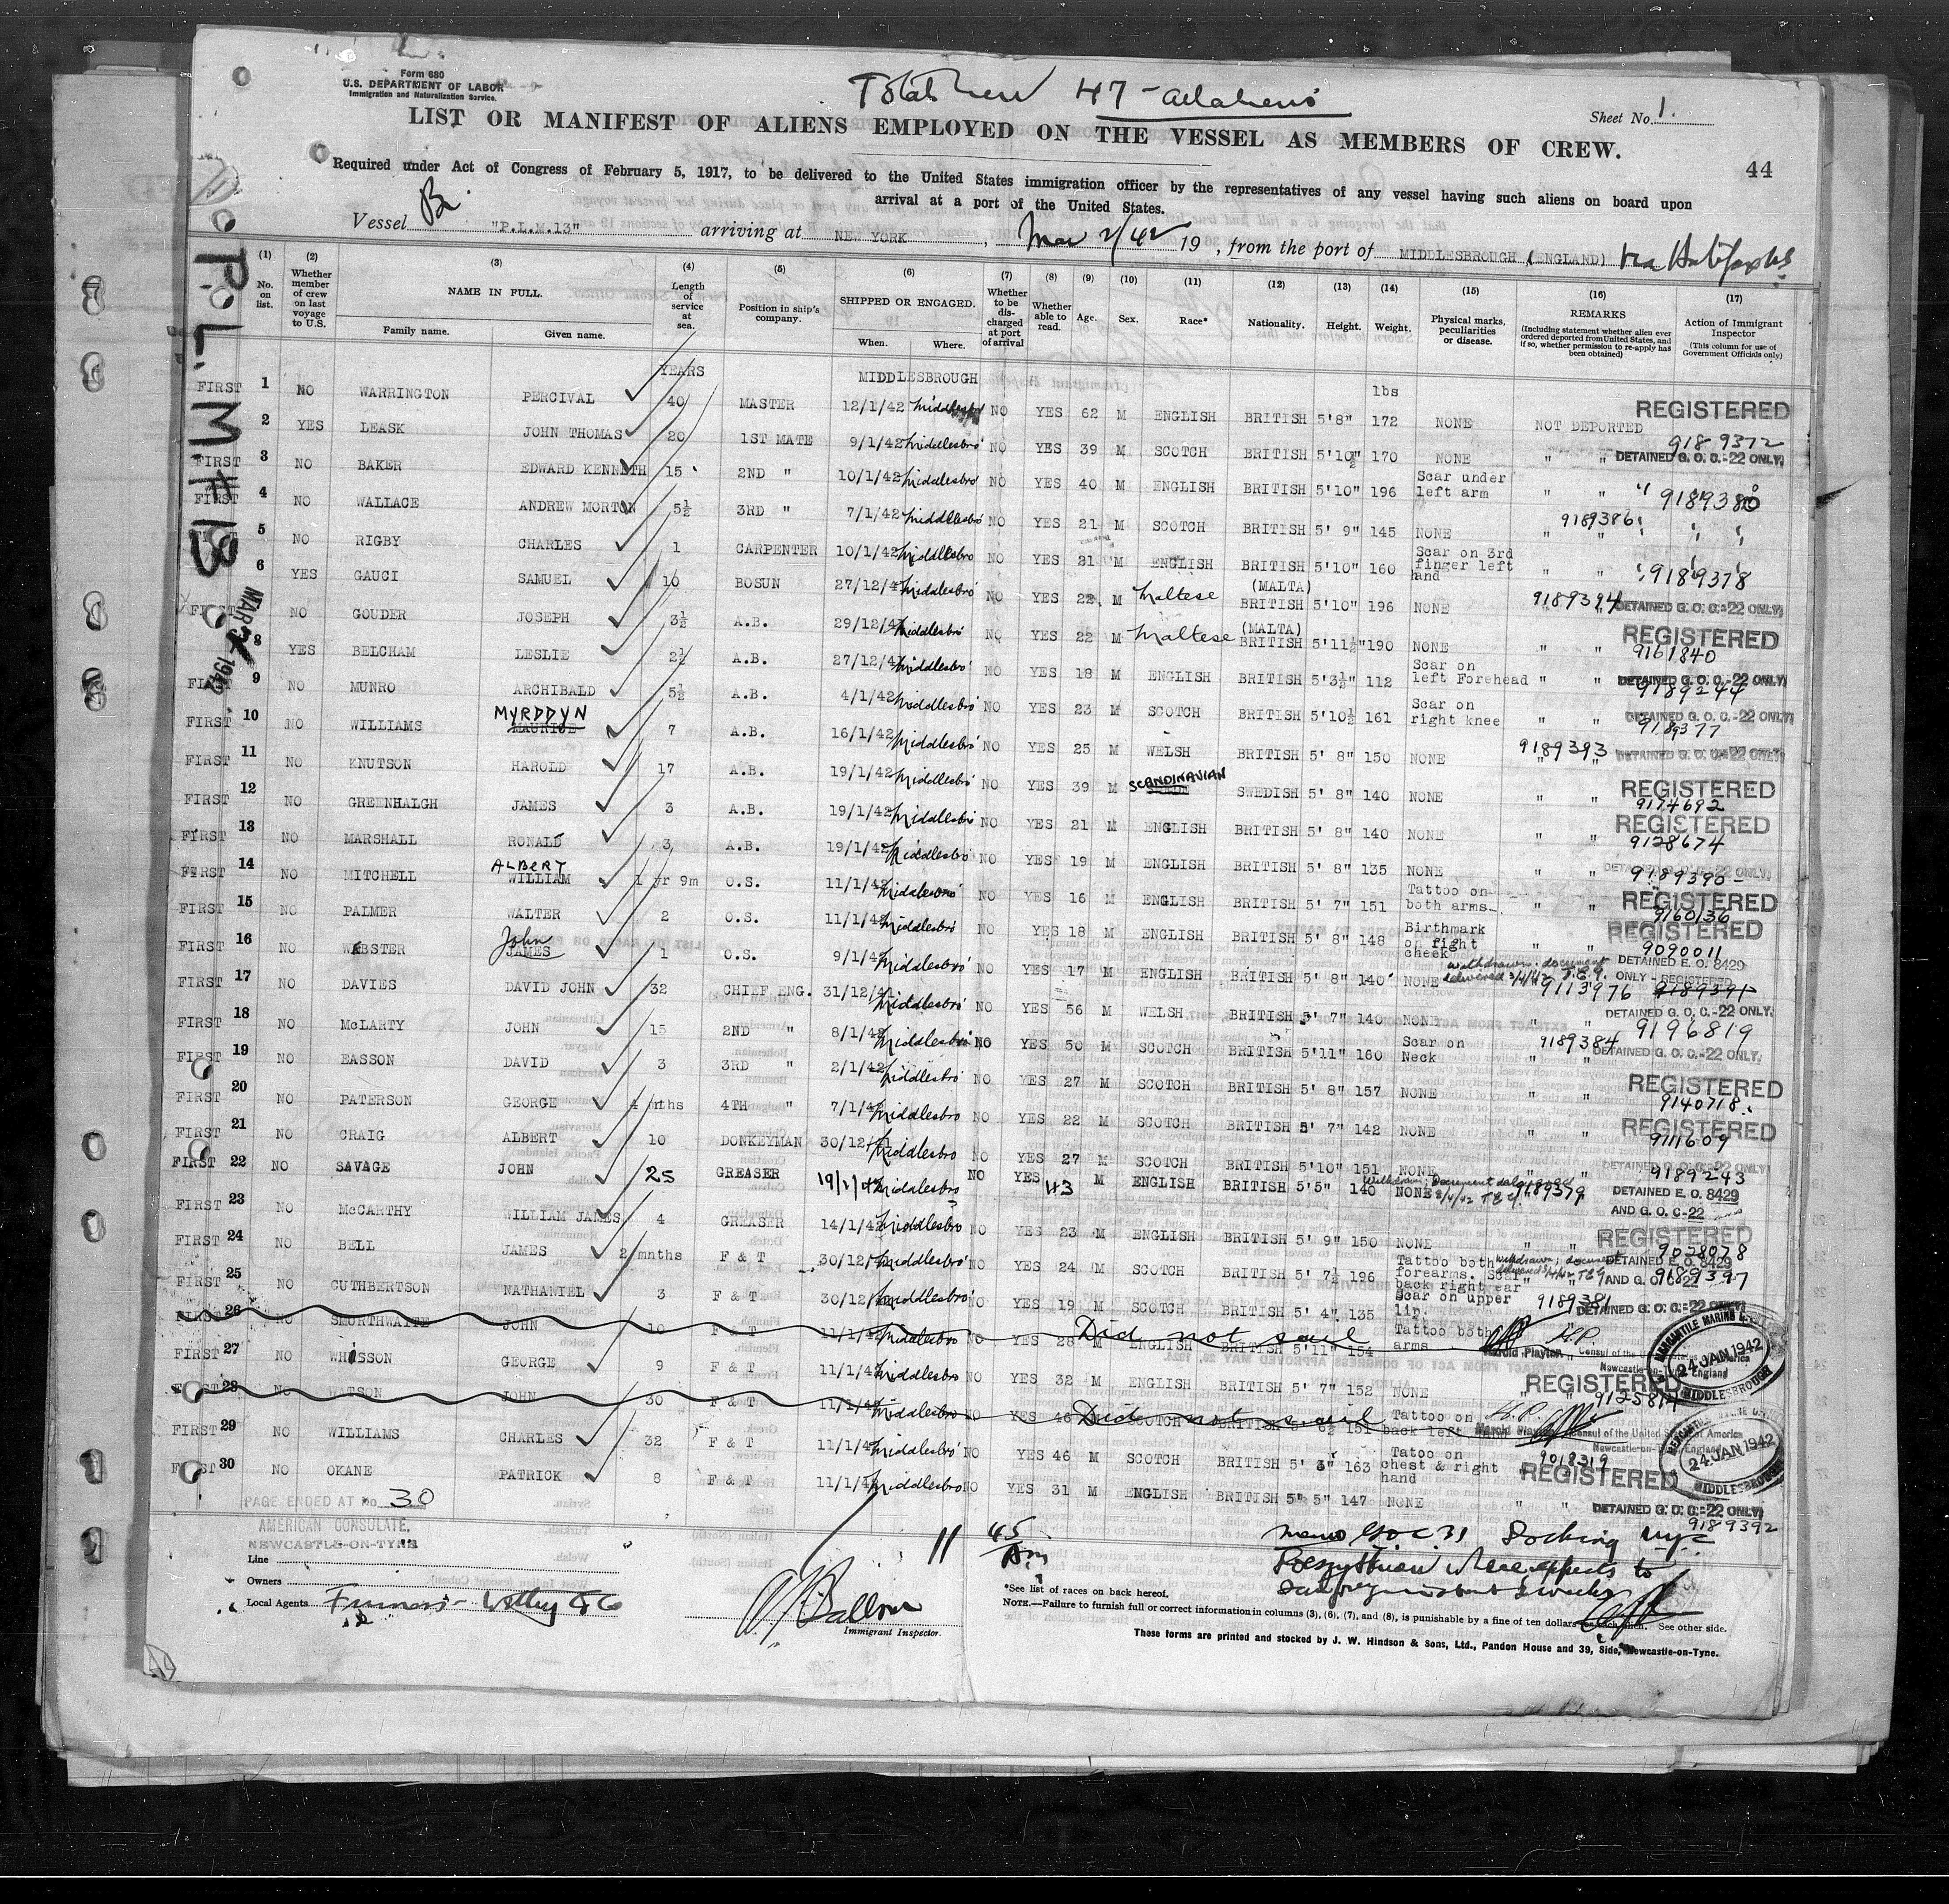 Form 680
U.S. DEPARTMENT OF LABOR
Immigration and Naturalization Service.
Total crew 47 - all aliens
Sheet No. 1.
LIST OR MANIFEST OF ALIENS EMPLOYED ON THE VESSEL AS MEMBERS OF CREW.
44
Required under Act of Congress of February 5, 1917, to be delivered to the United States immigration officer by the representatives of any vessel having such aliens on board upon
arrival at a port of the United States.
Vessel Br "P.L.M.13" arriving at NEW YORK, Mar 2/42 19 , from the port of MIDDLESBROUGH (ENGLAND) via Halifax
P.L.M. 13
MAR 1942
(1) No. on list. (2) Whether member of crew on last voyage to U.S. (3) NAME IN FULL. Family name. Given name. (4) Length of service at sea. (5) Position in ship's company. (6) SHIPPED OR ENGAGED. When. Where. (7) Whether to be discharged at port of arrival (8) Whether able to read. (9) Age. (10) Sex. (11) Race* (12) Nationality. (13) Height. (14) Weight. (15) Physical marks, peculiarities or disease. (16) REMARKS (Including statement whether alien ever ordered deported from United States, and if so, whether permission to re-apply has been obtained) (17) Action of Immigrant Inspector (This column for use of Government Officials only)
YEARS MIDDLESBROUGH lbs
FIRST 1 NO WARRINGTON PERCIVAL 40 MASTER 12/1/42 Middlesbro NO YES 62 M ENGLISH BRITISH 5'8" 172 NONE NOT DEPORTED REGISTERED 9189372
2 YES LEASK JOHN THOMAS 20 1ST MATE 9/1/42 Middlesbro' NO YES 39 M SCOTCH BRITISH 5'10½" 170 NONE " " DETAINED G. O. C.-22 ONLY.
FIRST 3 NO BAKER EDWARD KENNETH 15 2ND " 10/1/42 Middlesbro' NO YES 40 M ENGLISH BRITISH 5'10" 196 Scar under left arm " " " 9189380
FIRST 4 NO WALLACE ANDREW MORTON 5½ 3RD " 7/1/42 Middlesbro' NO YES 21 M SCOTCH BRITISH 5' 9" 145 NONE " " 9189386
5 NO RIGBY CHARLES 1 CARPENTER 10/1/42 Middlesbro NO YES 21 M ENGLISH BRITISH 5'10" 160 Scar on 3rd finger left hand " " 9189378
6 YES GAUCI SAMUEL 10 BOSUN 27/12/41 Middlesbro' NO YES 22 M Maltese BRITISH (MALTA) 5'10" 196 NONE 9189394 DETAINED G. O. C.-22 ONLY.
FIRST NO GOUDER JOSEPH 3½ A.B. 29/12/41 Middlesbro' NO YES 22 M Maltese (MALTA) BRITISH 5'11½" 190 NONE " " REGISTERED 9161840
8 YES BELCHAM LESLIE 2½ A.B. 27/12/41 Middlesbro' NO YES 18 M ENGLISH BRITISH 5'3½" 112 Scar on left Forehead " " DETAINED G. O. C.-22 ONLY. 9189244
FIRST 9 NO MUNRO ARCHIBALD 5½ A.B. 4/1/42 Middlesbro' NO YES 23 M SCOTCH BRITISH 5'10½ 161 Scar on right knee " " DETAINED G. O. C.-22 ONLY. 9189377
FIRST 10 NO WILLIAMS MYRDDYN MAURICE 7 A.B. 16/1/42 Middlesbro' NO YES 25 M WELSH BRITISH 5' 8" 150 NONE 9189393 " " DETAINED G. O. C.-22 ONLY.
FIRST 11 NO KNUTSON HAROLD 17 A.B. 19/1/42 Middlesbro' NO YES 39 M SCANDINAVIAN SWEDISH 5' 8" 140 NONE " " REGISTERED 9174692
FIRST 12 NO GREENHALGH JAMES 3 A.B. 19/1/42 Middlesbro' NO YES 21 M ENGLISH BRITISH 5' 8" 140 NONE " " REGISTERED 9128674
FIRST 13 NO MARSHALL RONALD 3 A.B. 19/1/42 Middlesbro NO YES 19 M ENGLISH BRITISH 5' 8" 135 NONE " " DETAINED G. O. C.-22 ONLY. 9189390
FIRST 14 NO MITCHELL ALBERT WILLIAM 1 yr 9m O.S. 11/1/42 Middlesbro' NO YES 16 M ENGLISH BRITISH 5' 7" 151 Tattoo on both arms " " REGISTERED 9160136
FIRST 15 NO PALMER WALTER 2 O.S. 11/1/42 Middlesbro' NO YES 18 M ENGLISH BRITISH 5' 8" 148 Birthmark on right cheek " " REGISTERED 9090011
FIRST 16 NO WEBSTER John JAMES 1 O.S. 9/1/42 Middlesbro' NO YES 17 M ENGLISH BRITISH 5' 8" 140 NONE withdrawn: document delivered 3/4/42 T.E.G. DETAINED E. O. 8429 ONLY - REGISTERED 9113976 9189391
FIRST 17 NO DAVIES DAVID JOHN 32 CHIEF ENG. 31/12/41 Middlesbro' NO YES 56 M WELSH BRITISH 5' 7" 140 NONE " " DETAINED G. O. C.-22 ONLY. 9196819
FIRST 18 NO McLARTY JOHN 15 2ND " 8/1/42 Middlesbro' NO YES 50 M SCOTCH BRITISH 5'11" 160 Scar on Neck 9189384 " " DETAINED G. O. C.-22 ONLY.
FIRST 19 NO EASSON DAVID 3 3RD " 2/1/42 Middlesbro' NO YES 27 M SCOTCH BRITISH 5' 8" 157 NONE " " REGISTERED 9140718
FIRST 20 NO PATERSON GEORGE 4 mnths 4TH " 7/1/42 Middlesbro NO YES 22 M SCOTCH BRITISH 5' 7" 142 NONE " " REGISTERED 9111609
FIRST 21 NO CRAIG ALBERT 10 DONKEYMAN 30/12/41 Middlesbro NO YES 27 M SCOTCH BRITISH 5'10" 151 NONE " " DETAINED G. O. C.-22 ONLY. 9189243
FIRST 22 NO SAVAGE JOHN 25 GREASER 19/1/42 Middlesbro NO YES 43 M ENGLISH BRITISH 5'5" 140 NONE Withdrawn; Document delivered 3/4/42 T.E.G. 9189379 DETAINED E. O. 8429 AND G. O. C-22
FIRST 23 NO McCARTHY WILLIAM JAMES 4 GREASER 14/1/42 Middlesbro NO YES 23 M ENGLISH BRITISH 5' 9" 150 NONE " " REGISTERED 9028078
FIRST 24 NO BELL JAMES 2 mnths F & T 30/12/41 Middlesbro' NO YES 24 M SCOTCH BRITISH 5' 7½ 196 Tattoo both forearms. Scar back right ear withdrawn; document delivered 3/4/42 T.E.G. DETAINED E. O. 8429 AND G. O. C-22 9189397
FIRST 25 NO CUTHBERTSON NATHANIEL 3 F & T 30/12/41 Middlesbro' NO YES 19 M SCOTCH BRITISH 5' 4" 135 Scar on upper lip. 9189381 DETAINED G. O. C.-22 ONLY.
FIRST 26 NO SMURTHWAITE JOHN 10 F & T 11/1/42 Middlesbro NO YES 28 M ENGLISH BRITISH 5'11" 154 Tattoo both arms Did not sail H.P. Harold Playter Consul of the United States of America Newcastle-on-Tyne, England
MERCANTILE MARINE 24 JAN 1942 MIDDLESBROUGH
FIRST 27 NO WHISSON GEORGE 9 F & T 11/1/42 Middlesbro NO YES 32 M ENGLISH BRITISH 5' 7" 152 NONE " " REGISTERED 9125814
FIRST 28 NO WATSON JOHN 30 F & T 11/1/42 Middlesbro NO YES 46 M SCOTCH BRITISH 5' 6½ 151 Tattoo on back left Did not sail H.P. Harold Playter Consul of the United States of America Newcastle-on-Tyne, England
MERCANTILE MARINE 24 JAN 1942 MIDDLESBROUGH
FIRST 29 NO WILLIAMS CHARLES 32 F & T 11/1/42 Middlesbro' NO YES 46 M SCOTCH BRITISH 5' 3" 163 Tatoo on chest & right hand 9018319 REGISTERED
FIRST 30 NO OKANE PATRICK 8 F & T 11/1/42 Middlesbro NO YES 31 M ENGLISH BRITISH 5' 5" 147 NONE " " DETAINED G. O. C.-22 ONLY. 9189392
PAGE ENDED AT No 30
AMERICAN CONSULATE,
NEWCASTLE-ON-TYNE
Line
Owners
Local Agents Furness-Withy & Co
Immigrant Inspector.
11 45 Am
*See list of races on back hereof.
NOTE.—Failure to furnish full or correct information in columns (3), (6), (7), and (8), is punishable by a fine of ten dollars for each alien. See other side.
These forms are printed and stocked by J. W. Hindson & Sons, Ltd., Pandon House and 39, Side, Newcastle-on-Tyne.